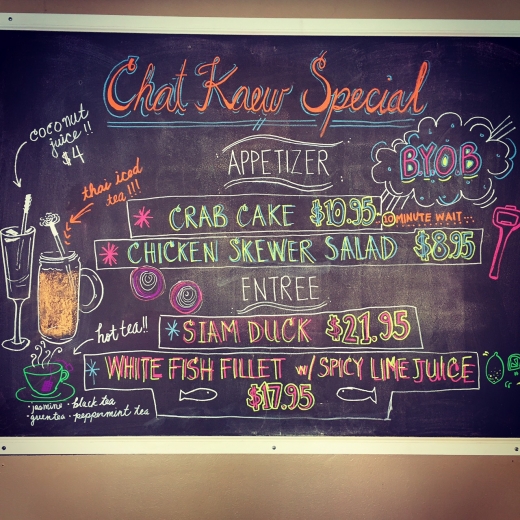 Chat Kaew Special
coconut
juice!!
$4
APPETIZER
B.Y.O.B
thai iced
tea!!!
CRAB CAKE $10.95
10 MINUTE WAIT...
CHICKEN SKEWER SALAD $8.95
ENTREE
SIAM DUCK $21.95
hot tea!!
WHITE FISH FILLET w/ SPICY LIME JUICE
$17.95
· jasmine · black tea
· green tea · peppermint tea